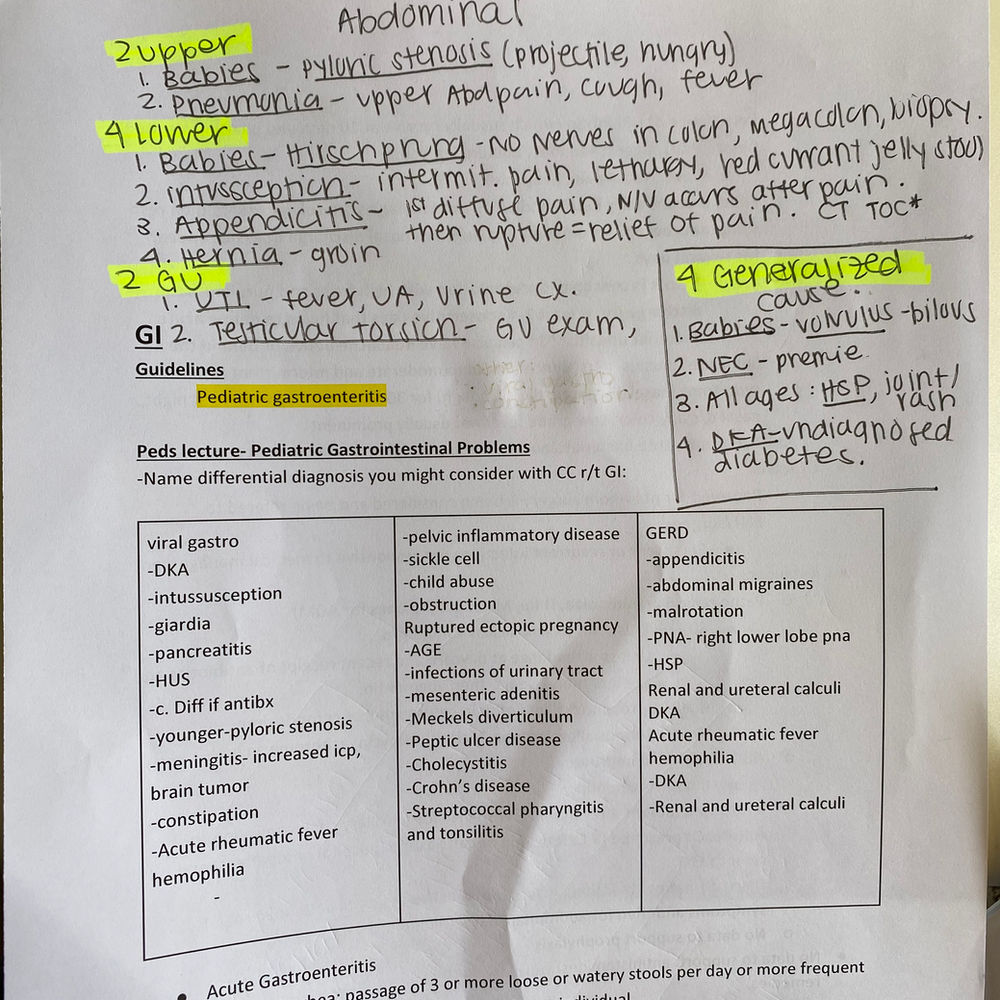 Abdominal
2 upper
1. Babies - pyloric stenosis (projectile, hungry)
2. Pneumonia - upper Abd pain, cough, fever
4 Lower
1. Babies - Hirschprung - No Nerves in colon, megacolon, biopsy.
2. intussception - intermit. pain, lethargy, red currant jelly stool
3. Appendicitis - 1st diffuse pain, N/V occurs after pain.
then rupture = relief of pain. CT TOC*
4. Hernia - groin
2 GU
1. UTI - fever, UA, Urine CX.
GI 2. Testicular torsion - GU exam,
4 Generalized
cause:
1. Babies - volvulus - bilous
2. NEC - premie
3. All ages: HSP, joint/
rash
4. DKA - undiagnosed
diabetes.
Guidelines
Pediatric gastroenteritis
other:
viral gastro
constipation
Peds lecture- Pediatric Gastrointestinal Problems
-Name differential diagnosis you might consider with CC r/t GI:
viral gastro
-DKA
-intussusception
-giardia
-pancreatitis
-HUS
-c. Diff if antibx
-younger-pyloric stenosis
-meningitis- increased icp,
brain tumor
-constipation
-Acute rheumatic fever
hemophilia
-
-pelvic inflammatory disease
-sickle cell
-child abuse
-obstruction
Ruptured ectopic pregnancy
-AGE
-infections of urinary tract
-mesenteric adenitis
-Meckels diverticulum
-Peptic ulcer disease
-Cholecystitis
-Crohn's disease
-Streptococcal pharyngitis
and tonsilitis
GERD
-appendicitis
-abdominal migraines
-malrotation
-PNA- right lower lobe pna
-HSP
Renal and ureteral calculi
DKA
Acute rheumatic fever
hemophilia
-DKA
-Renal and ureteral calculi
• Acute Gastroenteritis
: passage of 3 or more loose or watery stools per day or more frequent